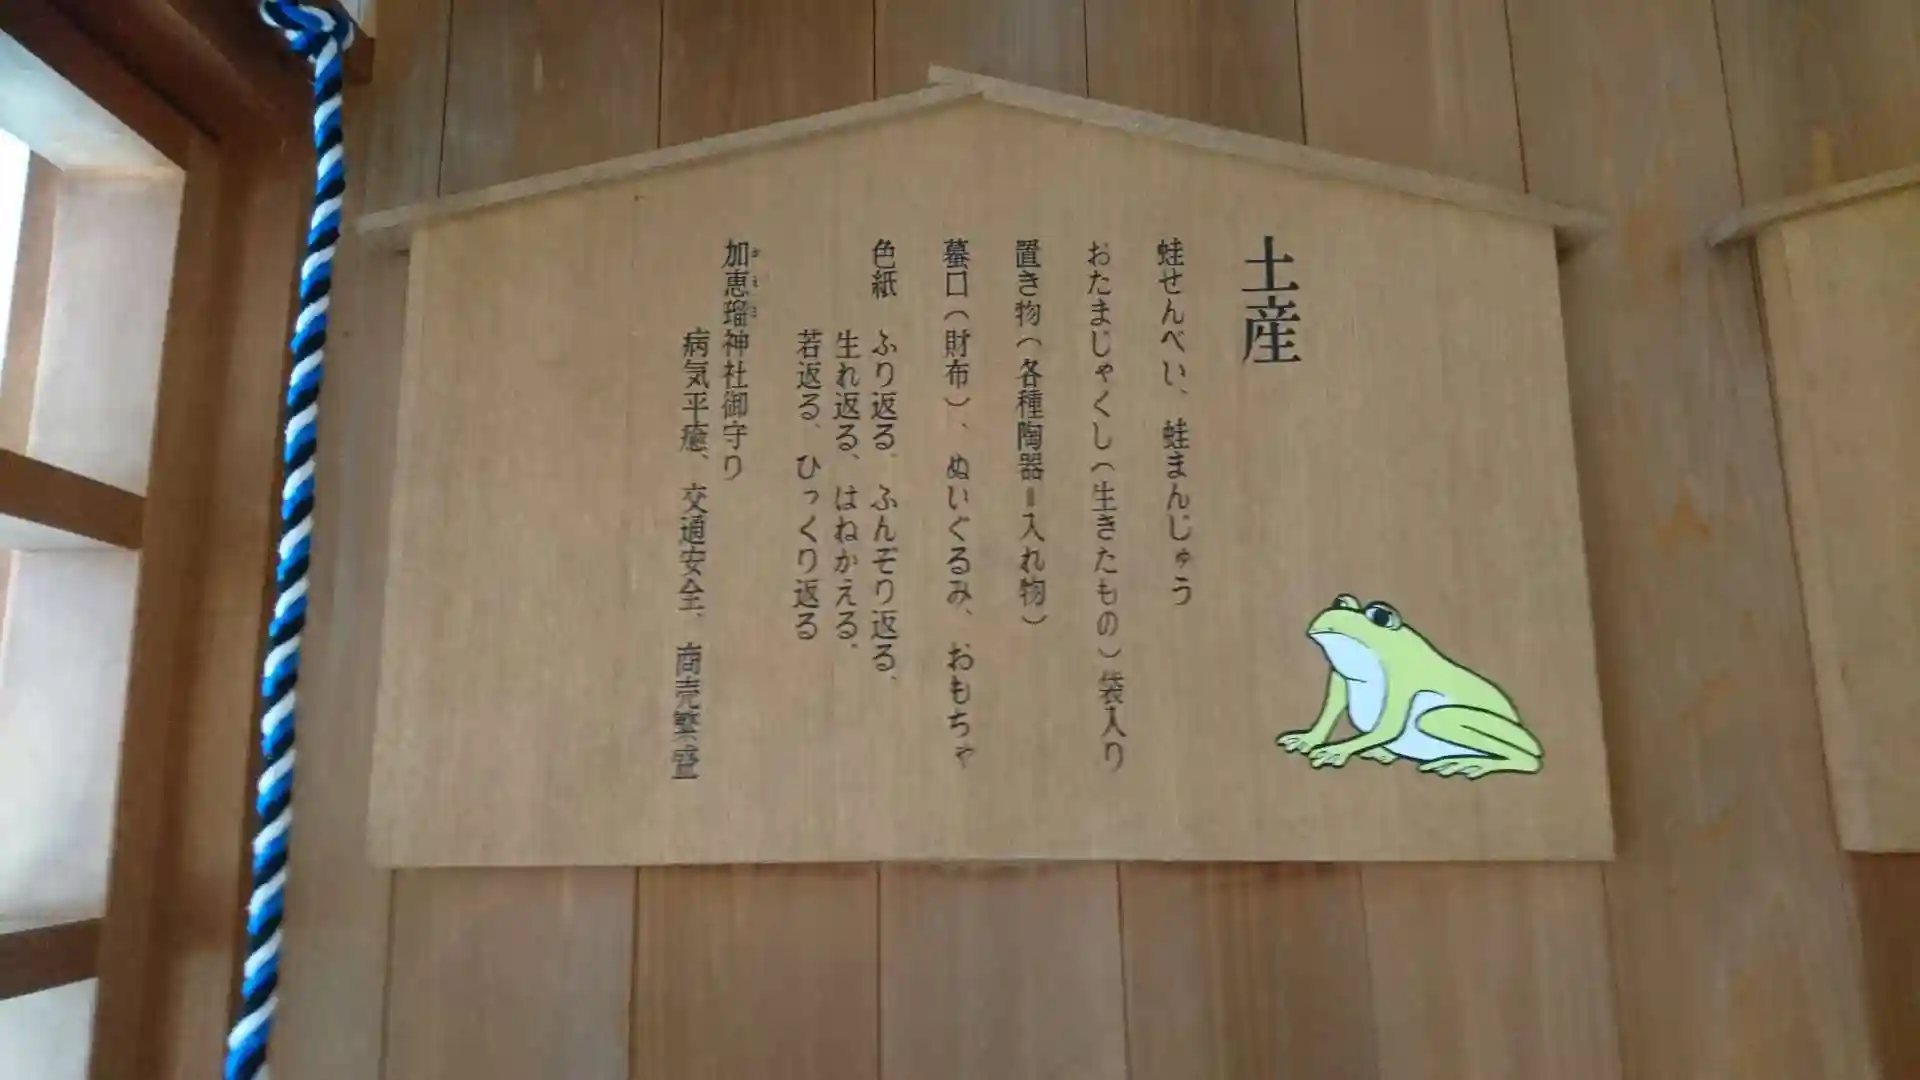 土産
蛙せんべい、蛙まんじゅう
おたまじゃくし(生きたもの)袋入り
置き物(各種陶器=入れ物)
蟇口(財布)、ぬいぐるみ、おもちゃ
色紙 ふり返る、ふんぞり返る、
生れ返る、はねかえる、
若返る、ひっくり返る
加恵瑠神社御守り
かえる
病気平癒、交通安全、商売繁盛